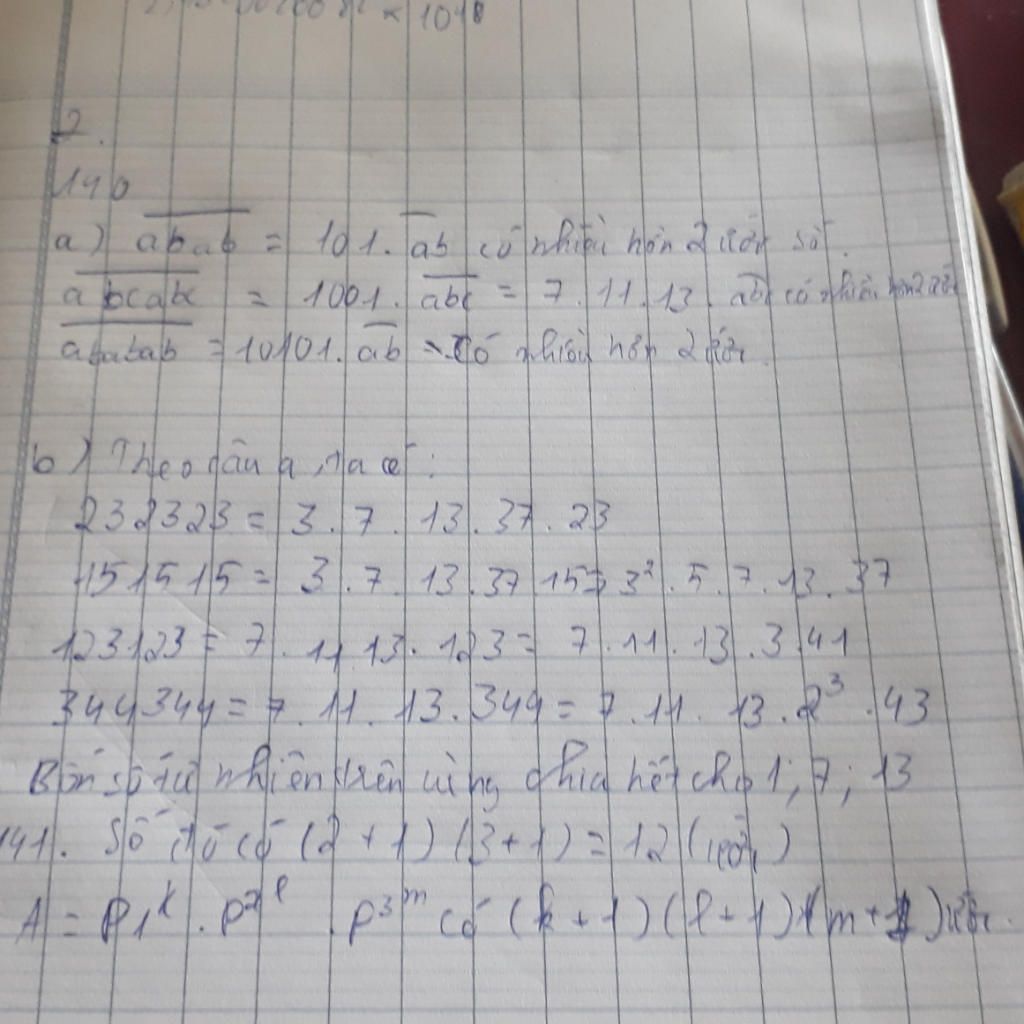 × 10
2.
140
a) abab = 101. ab có nhiều hơn 2 ước số.
abcabc = 1001. abc = 7.11.13. abc có nhiều hơn 2 ước
ababab = 10101. ab có nhiều hơn 2 ước.
b) Theo câu a, ta có:
232323 = 3.7.13.37.23
151515 = 3.7.13.37 15 = 3².5.7.13.37
123123 = 7.11.13.123 = 7.11.13.3.41
344344 = 7.11.13.344 = 7.11.13.2³.43
Bốn số tự nhiên trên cùng chia hết cho 1; 7; 13
141. Số đó có (2+1)(3+1) = 12 (ước)
A = P1^k . P2^l . P3^m có (k+1)(l+1)(m+1) ước.